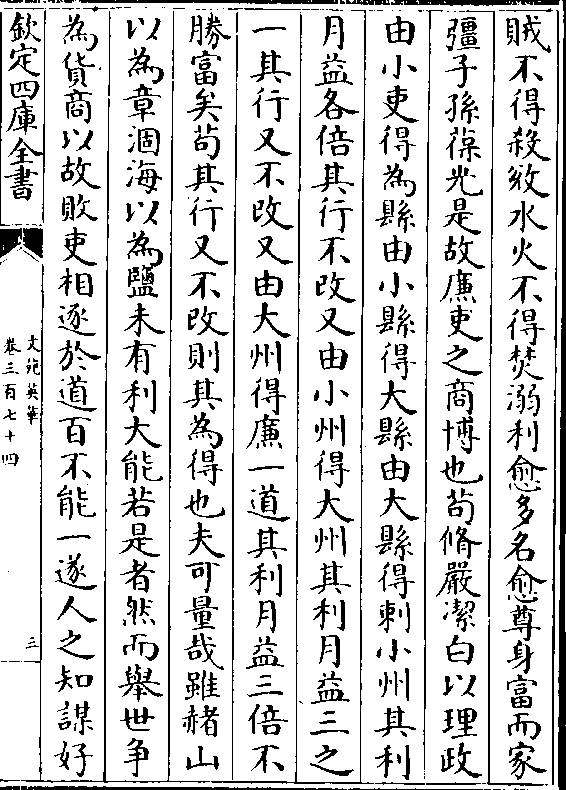 賊不得殺收水火不得焚溺利愈多名愈尊身富而家
彊子孫葆光是故廉吏之商博也苟脩嚴潔白以理政
由小吏得為縣由小縣得大縣由大縣得刺小州其利
月益各倍其行不改又由小州得大州其利月益三之
一其行又不改又由大州得廉一道其利月益三倍不
勝富矣苟其行又不改則其為得也夫可量哉雖赭山
以為章涸海以為鹽未有利大能若是者然而舉世争
為貨商以故敗吏相逐於道百不能一遂人之知謀好
欽定四庫全書
文苑英華
卷三百七十四
三